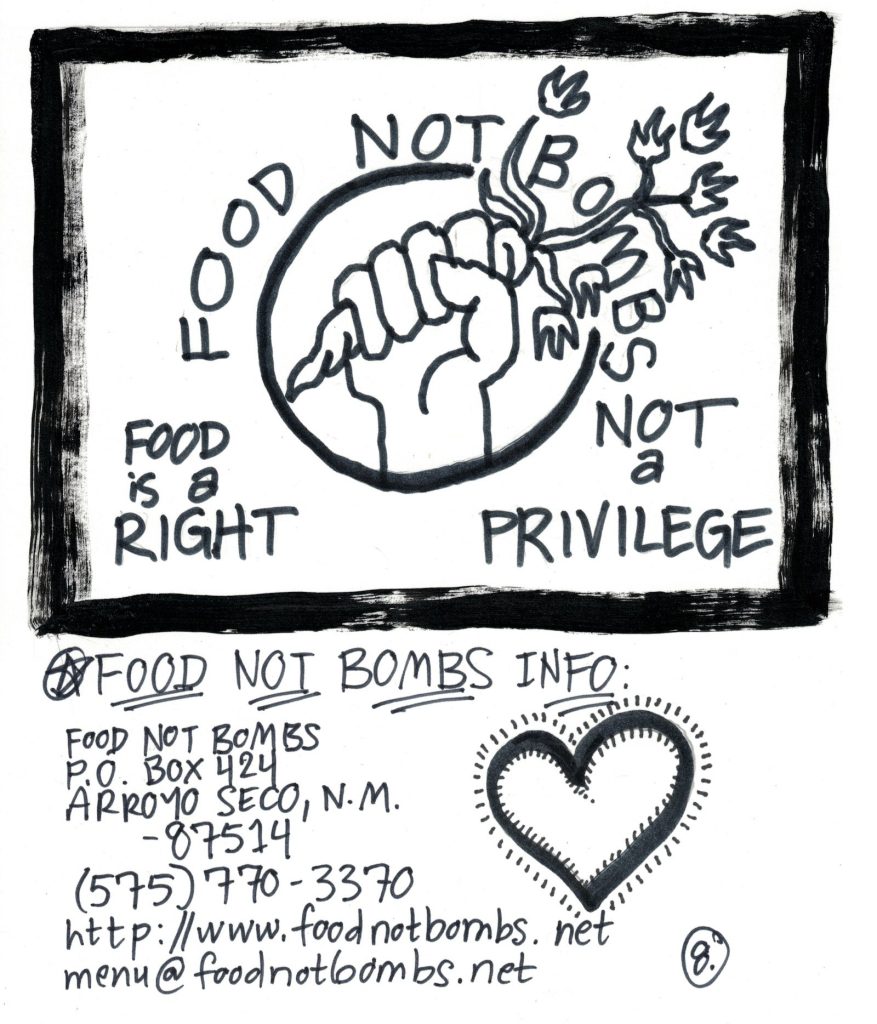 FOOD NOT BOMBS
FOOD
is a
RIGHT
NOT
a
PRIVILEGE
FOOD NOT BOMBS INFO:
FOOD NOT BOMBS
P.O. BOX 424
ARROYO SECO, N.M.
-87514
(575) 770-3370
http://www.foodnotbombs.net
menu@foodnotbombs.net
8.